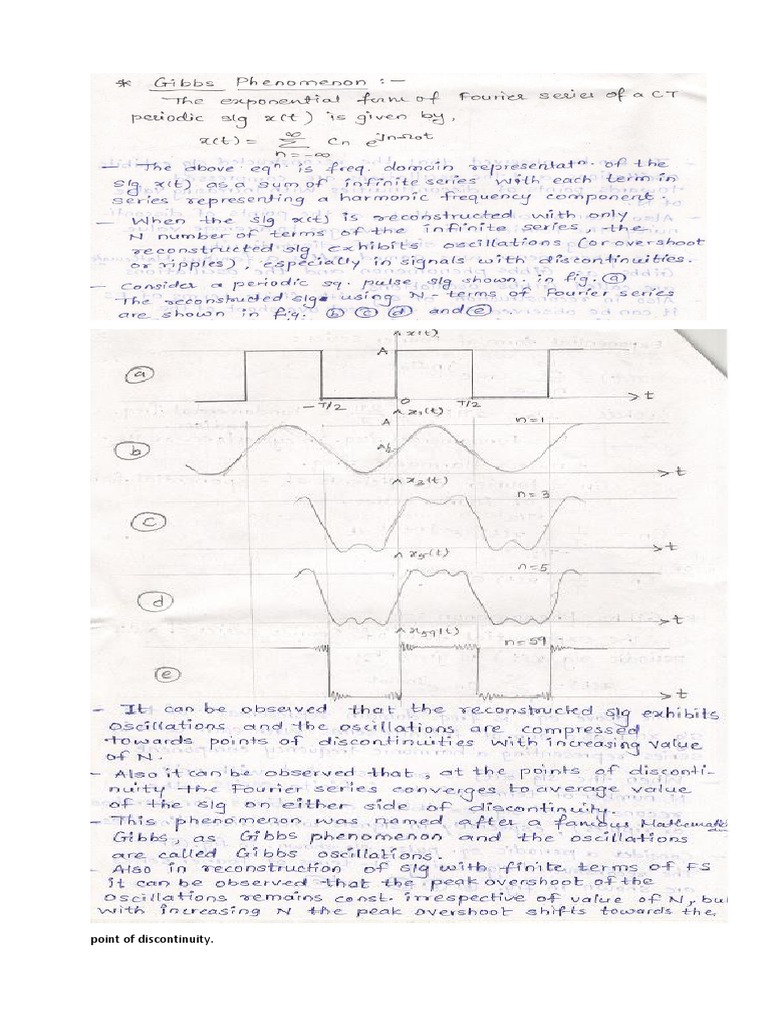 * Gibbs Phenomenon :-
The exponential form of Fourier series of a CT
periodic s/g x(t) is given by,
x(t) = ∞ Σ n=-∞ Cn e^jnΩot
- The above eqn is freq. domain representatn. of the
s/g x(t) as a sum of infinite series with each term in
series representing a harmonic frequency component.
- When the s/g x(t) is reconstructed with only
N number of terms of the infinite series, the
reconstructed s/g exhibits oscillations (or overshoot
or ripples), especially in signals with discontinuities.
- Consider a periodic sq. pulse s/g shown in fig. (a)
The reconstructed s/gs using N-terms of Fourier series
are shown in fig. (b) (c) (d) and (e)
x(t)
A
(a)
t
-T/2 0 T/2
x1(t)
A n=1
A/2
(b)
t
x3(t)
n=3
(c)
t
x5(t)
n=5
(d)
t
x59(t)
n=59
(e)
t
- It can be observed that the reconstructed s/g exhibits
oscillations and the oscillations are compressed
towards points of discontinuities with increasing value
of N.
- Also it can be observed that, at the points of disconti-
nuity the Fourier series converges to average value
of the s/g on either side of discontinuity.
- This phenomenon was named after a famous
Gibbs, as Gibbs phenomenon and the oscillations
are called Gibbs oscillations.
- Also in reconstruction of s/g with finite terms of FS
it can be observed that the peak overshoot of the
oscillations remains const. irrespective of value of N, but
with increasing N the peak overshoot shifts towards the
point of discontinuity.